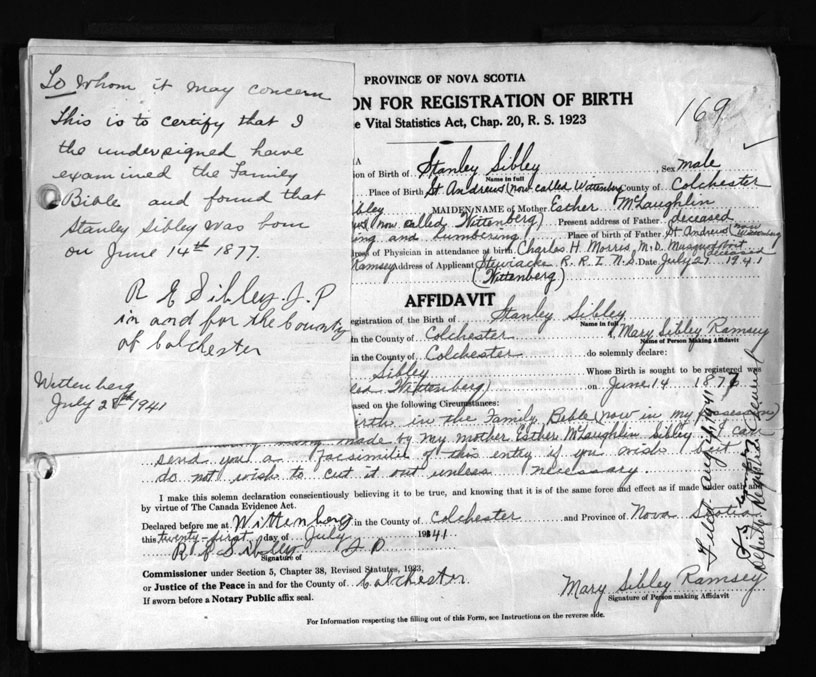 To Whom it may concern
This is to certify that I
the undersigned have
examined the Family
Bible and found that
Stanley Sibley was born
on June 14th 1877.
R E Sibley J.P
in and for the County
of Colchester
Wittenberg
July 28th 1941
PROVINCE OF NOVA SCOTIA
ON FOR REGISTRATION OF BIRTH
e Vital Statistics Act, Chap. 20, R. S. 1923
169
ion of Birth of Stanley Sibley Sex male
Name in full
Place of Birth St Andrews (now called Wittenberg County of Colchester
ibley MAIDEN/NAME of Mother Esther McLaughlin
now called Wittenberg) Present address of Father deceased
ing and lumbering Place of birth of Father St Andrews (now
of Physician in attendance at birth Charles H. Morris, M.D. Musquodoboit deceased
Ramsey Address of Applicant Stewiacke R. R. 1 N.S. Date July 27 1941
(Wittenberg)
AFFIDAVIT
egistration of the Birth of Stanley Sibley
Name in full
in the County of Colchester I, Mary Sibley Ramsey
Name of Person Making Affidavit
in the County of Colchester do solemnly declare:
Sibley Whose Birth is sought to be registered was
led Wittenberg) on June 14 187
ased on the following Circumstances:
birth in the Family Bible (now in my possession)
made by my mother Esther McLaughlin Sibley. I can
send you a facsimile of this entry if you wish but
do not wish to cut it out unless necessary.
I make this solemn declaration conscientiously believing it to be true, and knowing that it is of the same force and effect as if made under oath and
by virtue of The Canada Evidence Act.
Declared before me at Wittenberg in the County of Colchester and Province of Nova Scotia
this twenty-first day of July 1941
R E Sibley J P
Signature of
Commissioner under Section 5, Chapter 38, Revised Statutes, 1923,
or Justice of the Peace in and for the County of Colchester
If sworn before a Notary Public affix seal.
Mary Sibley Ramsey
Signature of Person making Affidavit
For Information respecting the filling out of this Form, see Instructions on the reverse side.
Filed 1941
Deputy Registrar General